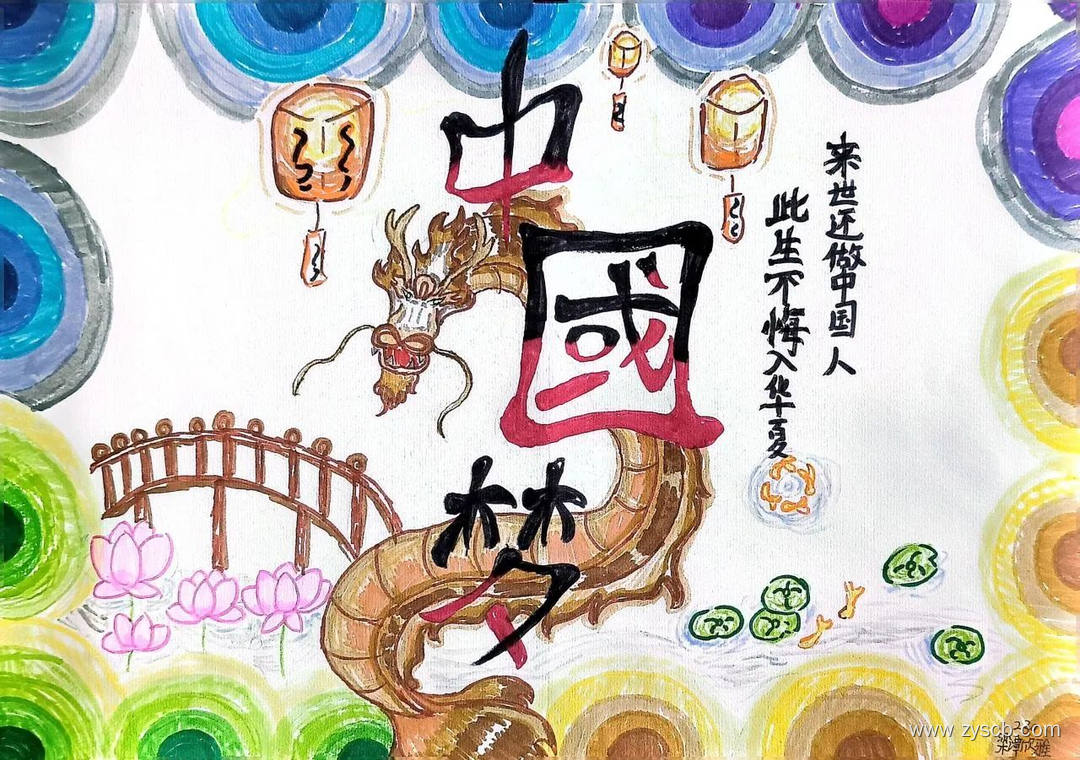 中國梦
来世还做中国人
此生不悔入华夏
www.zyscb.com
23